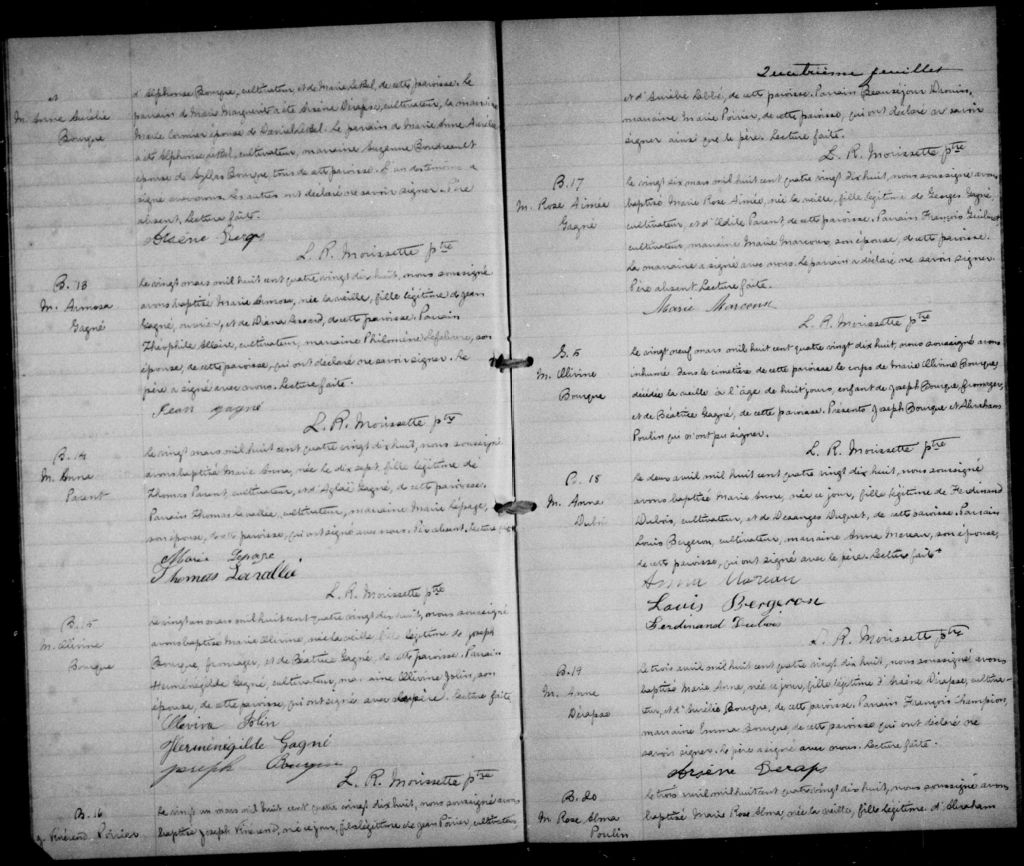 et
M. Anne Aurélie
Bourque
d'Alphonse Bourque, cultivateur, et de Marie Lebel, de cette paroisse. Le
parrain de Marie Marguerite a été Arsène Déraspe, cultivateur, la marraine
Marie Cormier épouse de Daniel Lebel. Le parrain de Marie Anne Aurélie
a été Alphonse Lebel, cultivateur, marraine Suzanne Boudreau et
épouse de Sylas Bourque tous de cette paroisse. L'un des témoins a
signé avec nous. Les autres ont déclaré ne savoir signer. Père
absent. Lecture faite.
Arsène Derasp
L. R. Morissette ptre
B. 13
M. Armosa
Gagné
Le vingt mars mil huit cent quatre vingt dix huit, nous soussigné
avons baptisé Marie Armosa, née la veille, fille légitime de Jean
Gagné, ouvrier, et de Diana, de cette paroisse. Parrain
Théophile Allaire, cultivateur, marraine Philomène Lefebvre, son
épouse, de cette paroisse, qui ont déclaré ne savoir signer. Le
père a signé avec nous. Lecture faite.
Jean gagné
L. R. Morissette ptre
B. 14
M. Anna
Parent
Le vingt mars mil huit cent quatre vingt dix huit, nous soussigné
avons baptisé Marie Anna, née le dix sept, fille légitime de
Thomas Parent, cultivateur, et d'Aglaé Gagné, de cette paroisse.
Parrain Thomas Lavallée, cultivateur, marraine Marie Lepage,
son épouse, de cette paroisse, qui ont signé avec nous. Père absent. Lecture faite
Marie Lepage
Thomas Lavallée
L. R. Morissette ptre
B. 15
M. Alivine
Bourque
Le vingt un mars mil huit cent quatre vingt dix huit, nous soussigné
avons baptisé Marie Alivine, née la veille, fille légitime de Joseph
Bourque, fromager, et de Béatrice Gagné, de cette paroisse. Parrain
Herménégilde Gagné, cultivateur, marraine Allivine Jolin, son
épouse, de cette paroisse, qui ont signé avec le père. Lecture faite
Alevina Jolin
Herménégilde Gagné
Joseph Bourque
L. R. Morissette ptre
B. 16
Poirier
Le vingt un mars mil huit cent quatre vingt dix huit, nous soussigné avons
baptisé Joseph, né ce jour, fils légitime de Jean Poirier, cultivateur,
Quatrième feuillet
et d'Aurélie Labbé, de cette paroisse. Parrain Beauséjour Drouin,
marraine Marie Poirier, de cette paroisse, qui ont déclaré ne savoir
signer ainsi que le père. Lecture faite.
L. R. Morissette ptre
B. 17
M. Rose Aimée
Gagné
Le vingt six mars mil huit cent quatre vingt dix huit, nous soussigné avons
baptisé Marie Rose Aimée, née la veille, fille légitime de Georges Gagné,
cultivateur, et d'Odile Parent, de cette paroisse. Parrain François Guilmet,
cultivateur, marraine Marie Marcoux, son épouse, de cette paroisse.
La marraine a signé avec nous. Le parrain a déclaré ne savoir signer.
Père absent. Lecture faite.
Marie Marcoux
L. R. Morissette ptre
S. 5
M. Alivine
Bourque
Le vingt neuf mars mil huit cent quatre vingt dix huit, nous soussigné avons
inhumé dans le cimetière de cette paroisse le corps de Marie Allivine Bourque,
décédée la veille à l'âge de huit jours, enfant de Joseph Bourque, fromager,
et de Béatrice Gagné, de cette paroisse. Présents Joseph Bourque et Abraham
Poulin qui n'ont pu signer.
L. R. Morissette ptre
B. 18
M. Anna
Dubois
Le deux avril mil huit cent quatre vingt dix huit, nous soussigné
avons baptisé Marie Anne, née ce jour, fille légitime de Ferdinand
Dubois, cultivateur, et de Desanges Duquet, de cette paroisse. Parrain
Louis Bergeron, cultivateur, marraine Anna Nareau, son épouse,
de cette paroisse, qui ont signé avec le père. Lecture faite.
Anna Nareau
Louis Bergeron
Ferdinand Dubois
L. R. Morissette ptre
B. 19
M. Anne
Déraspe
Le trois avril mil huit cent quatre vingt dix huit, nous soussigné avons
baptisé Marie Anne, née ce jour, fille légitime d'Arsène Déraspe, cultiva-
teur, et d'Aurélie Bourque, de cette paroisse. Parrain François Thampion,
marraine Emma Bourque de cette paroisse qui ont déclaré ne
savoir signer. Le père a signé avec nous. Lecture faite.
Arsène Derasp
B. 20
M. Rose Alma
Poulin
Le trois avril mil huit cent quatre vingt dix huit, nous soussigné avons
baptisé Marie Rose Alma, née la veille, fille légitime d'Abraham